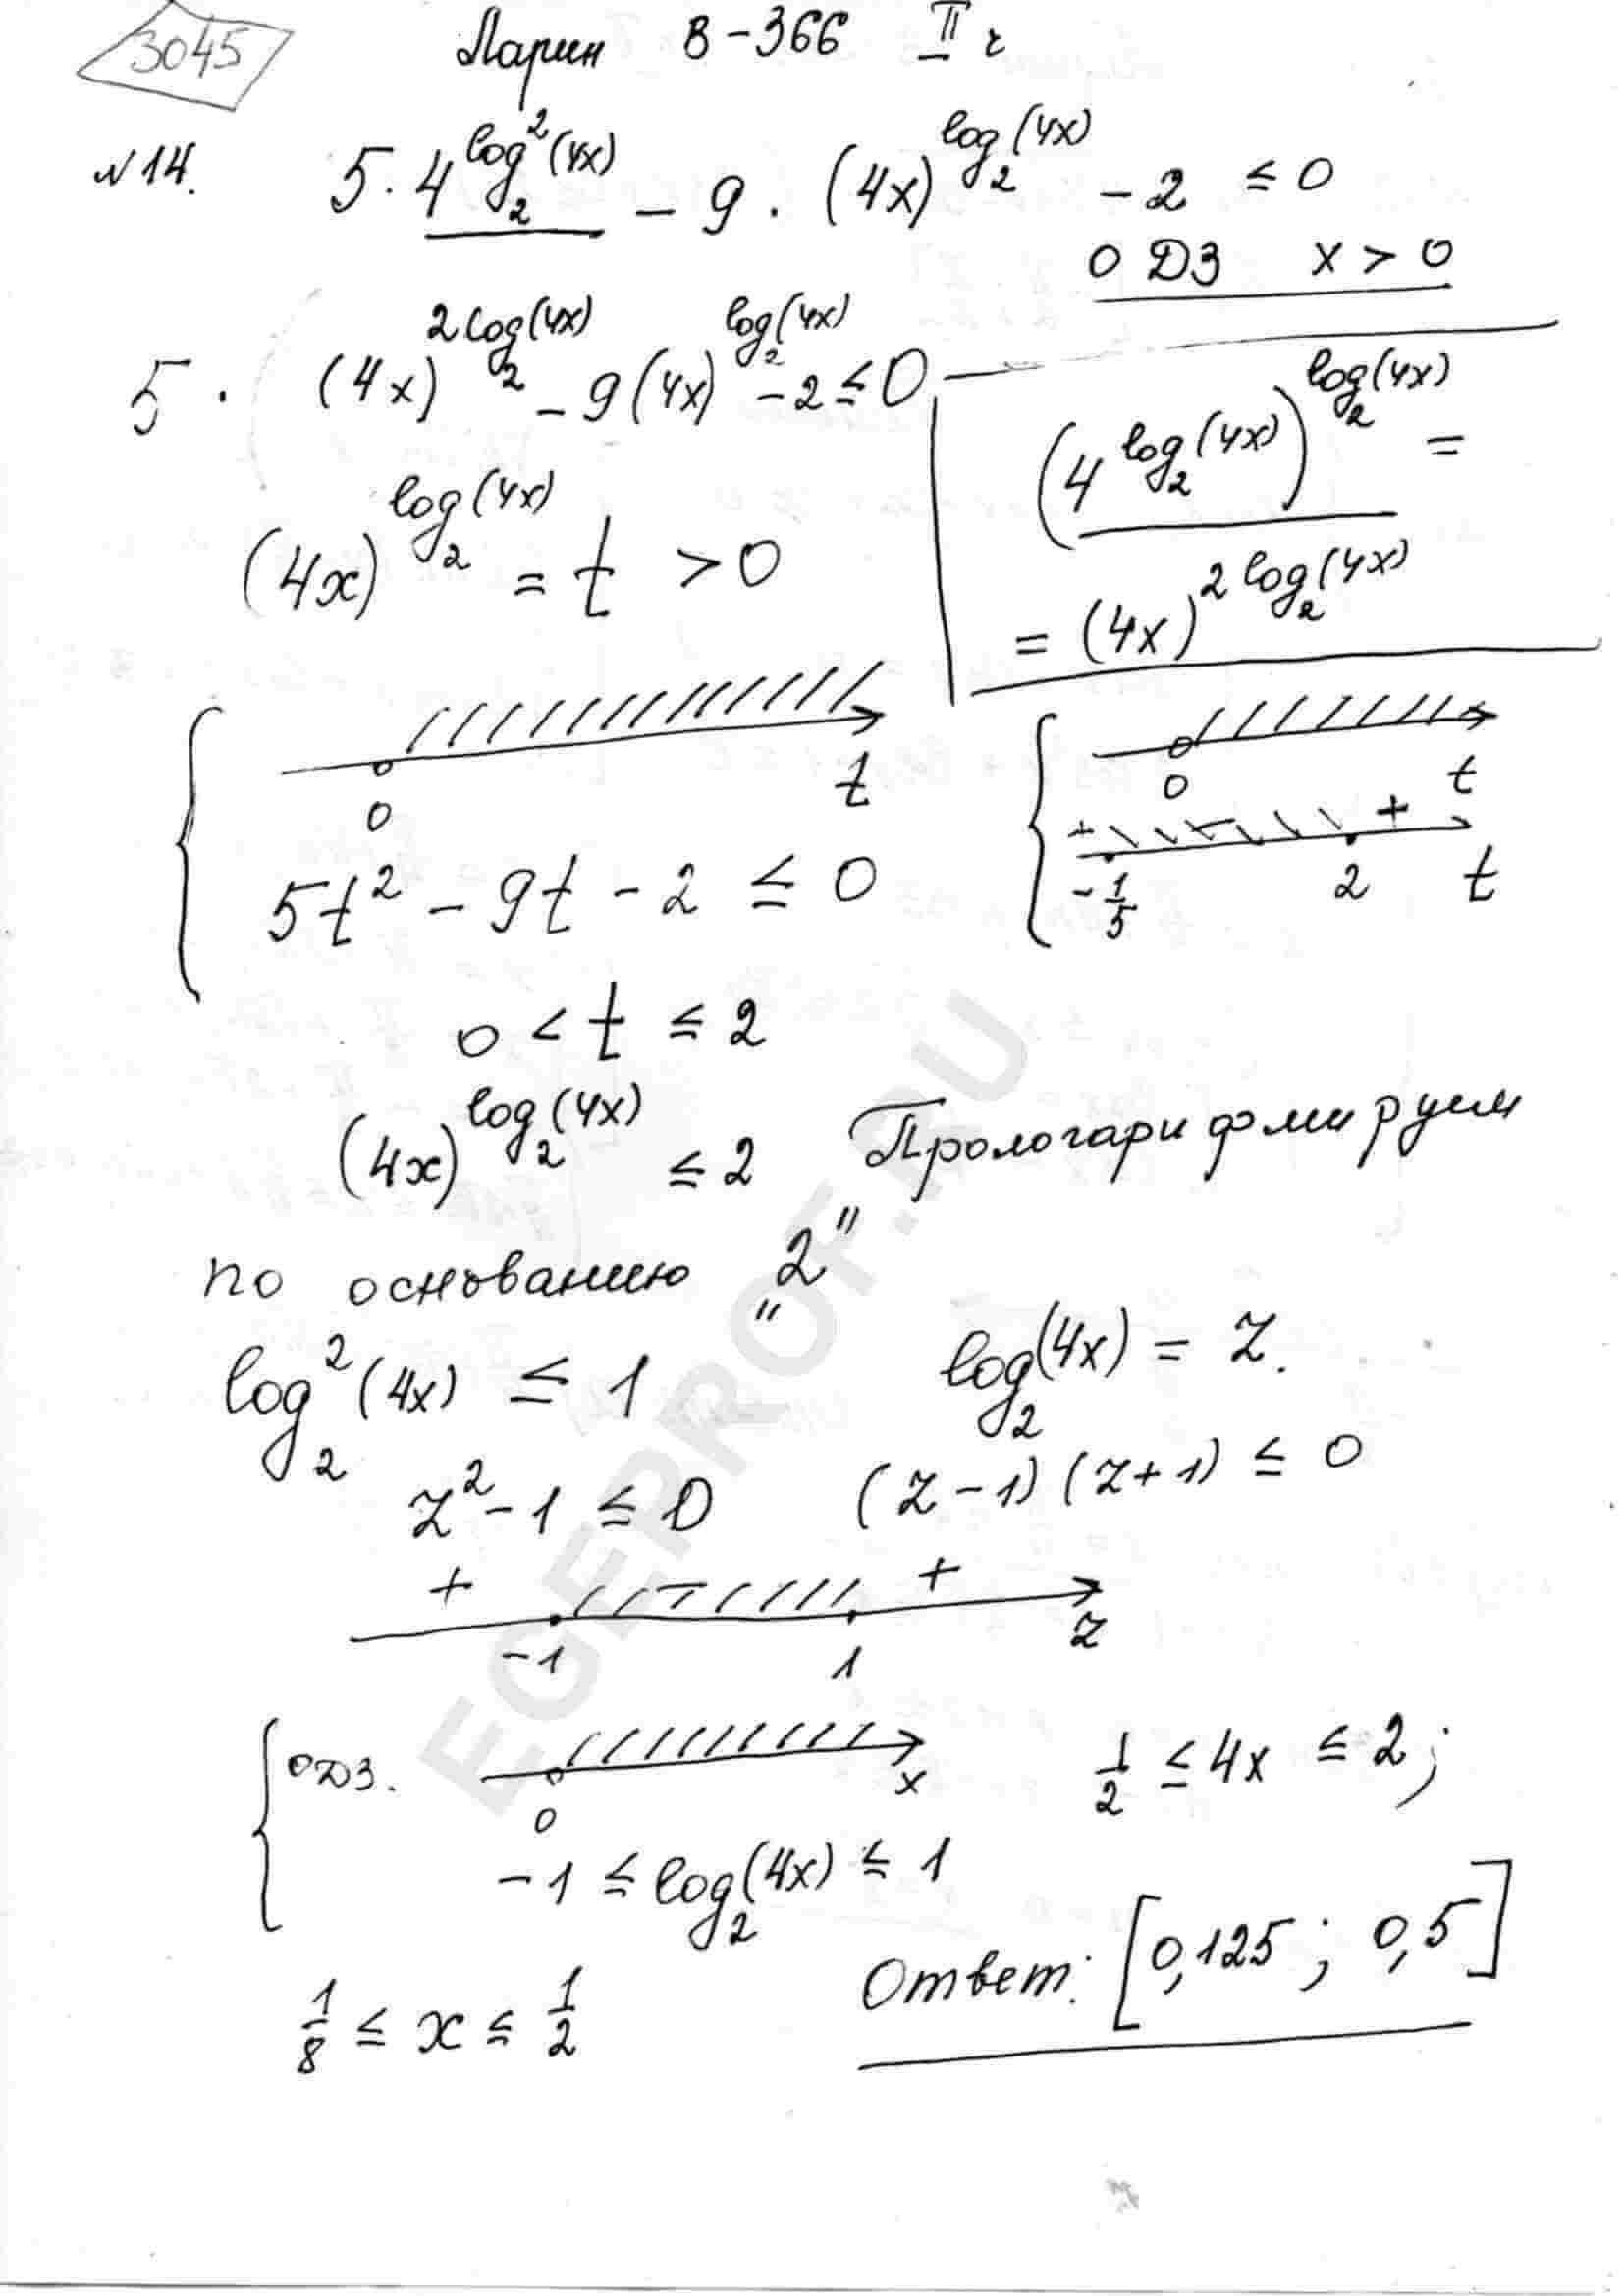 3045
Ларин В-366 II ч
№14. 5·4^{log_2^2(4x)} - 9·(4x)^{log_2(4x)} - 2 ≤ 0
ОДЗ x > 0
5·(4x)^{2log_2(4x)} - 9(4x)^{log_2(4x)} - 2 ≤ 0
(4^{log_2(4x)})^{log_2(4x)} =
= (4x)^{2log_2(4x)}
(4x)^{log_2(4x)} = t > 0
0 t
5t² - 9t - 2 ≤ 0
0 t
+ +
-1/5 2 t
0 < t ≤ 2
(4x)^{log_2(4x)} ≤ 2 Прологарифмируем
по основанию "2"
log_2^2(4x) ≤ 1 log_2(4x) = z.
z² - 1 ≤ 0 (z - 1)(z + 1) ≤ 0
+ +
-1 1 z
ОДЗ. 0 x
1/2 ≤ 4x ≤ 2;
-1 ≤ log_2(4x) ≤ 1
1/8 ≤ x ≤ 1/2
Ответ: [0,125; 0,5]
EGEPROF.RU